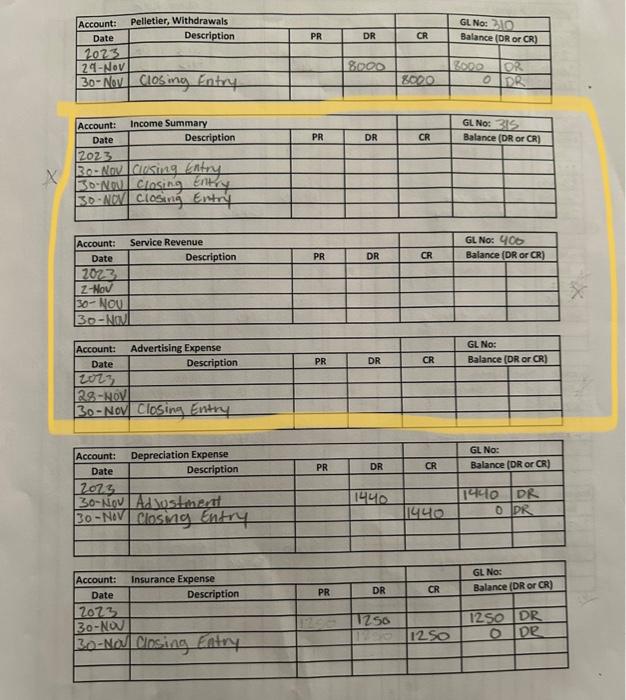 Account: Pelletier, Withdrawals GL No: 310
Date Description PR DR CR Balance (DR or CR)
2023
29-Nov 8000 8000 DR
30-Nov Closing Entry 8000 0 DR
Account: Income Summary GL No: 315
Date Description PR DR CR Balance (DR or CR)
2023
X 30-Nov Closing Entry
30-Nov Closing Entry
30-Nov Closing Entry
Account: Service Revenue GL No: 400
Date Description PR DR CR Balance (DR or CR)
2023
2-Nov X
30-Nov
30-Nov
Account: Advertising Expense GL No:
Date Description PR DR CR Balance (DR or CR)
2023
28-Nov
30-Nov Closing Entry
Account: Depreciation Expense GL No:
Date Description PR DR CR Balance (DR or CR)
2023
30-Nov Adjustment 1440 1440 DR
30-Nov Closing Entry 1440 0 DR
Account: Insurance Expense GL No:
Date Description PR DR CR Balance (DR or CR)
2023
30-Nov 1250 1250 DR
30-Nov Closing Entry 1250 0 DR